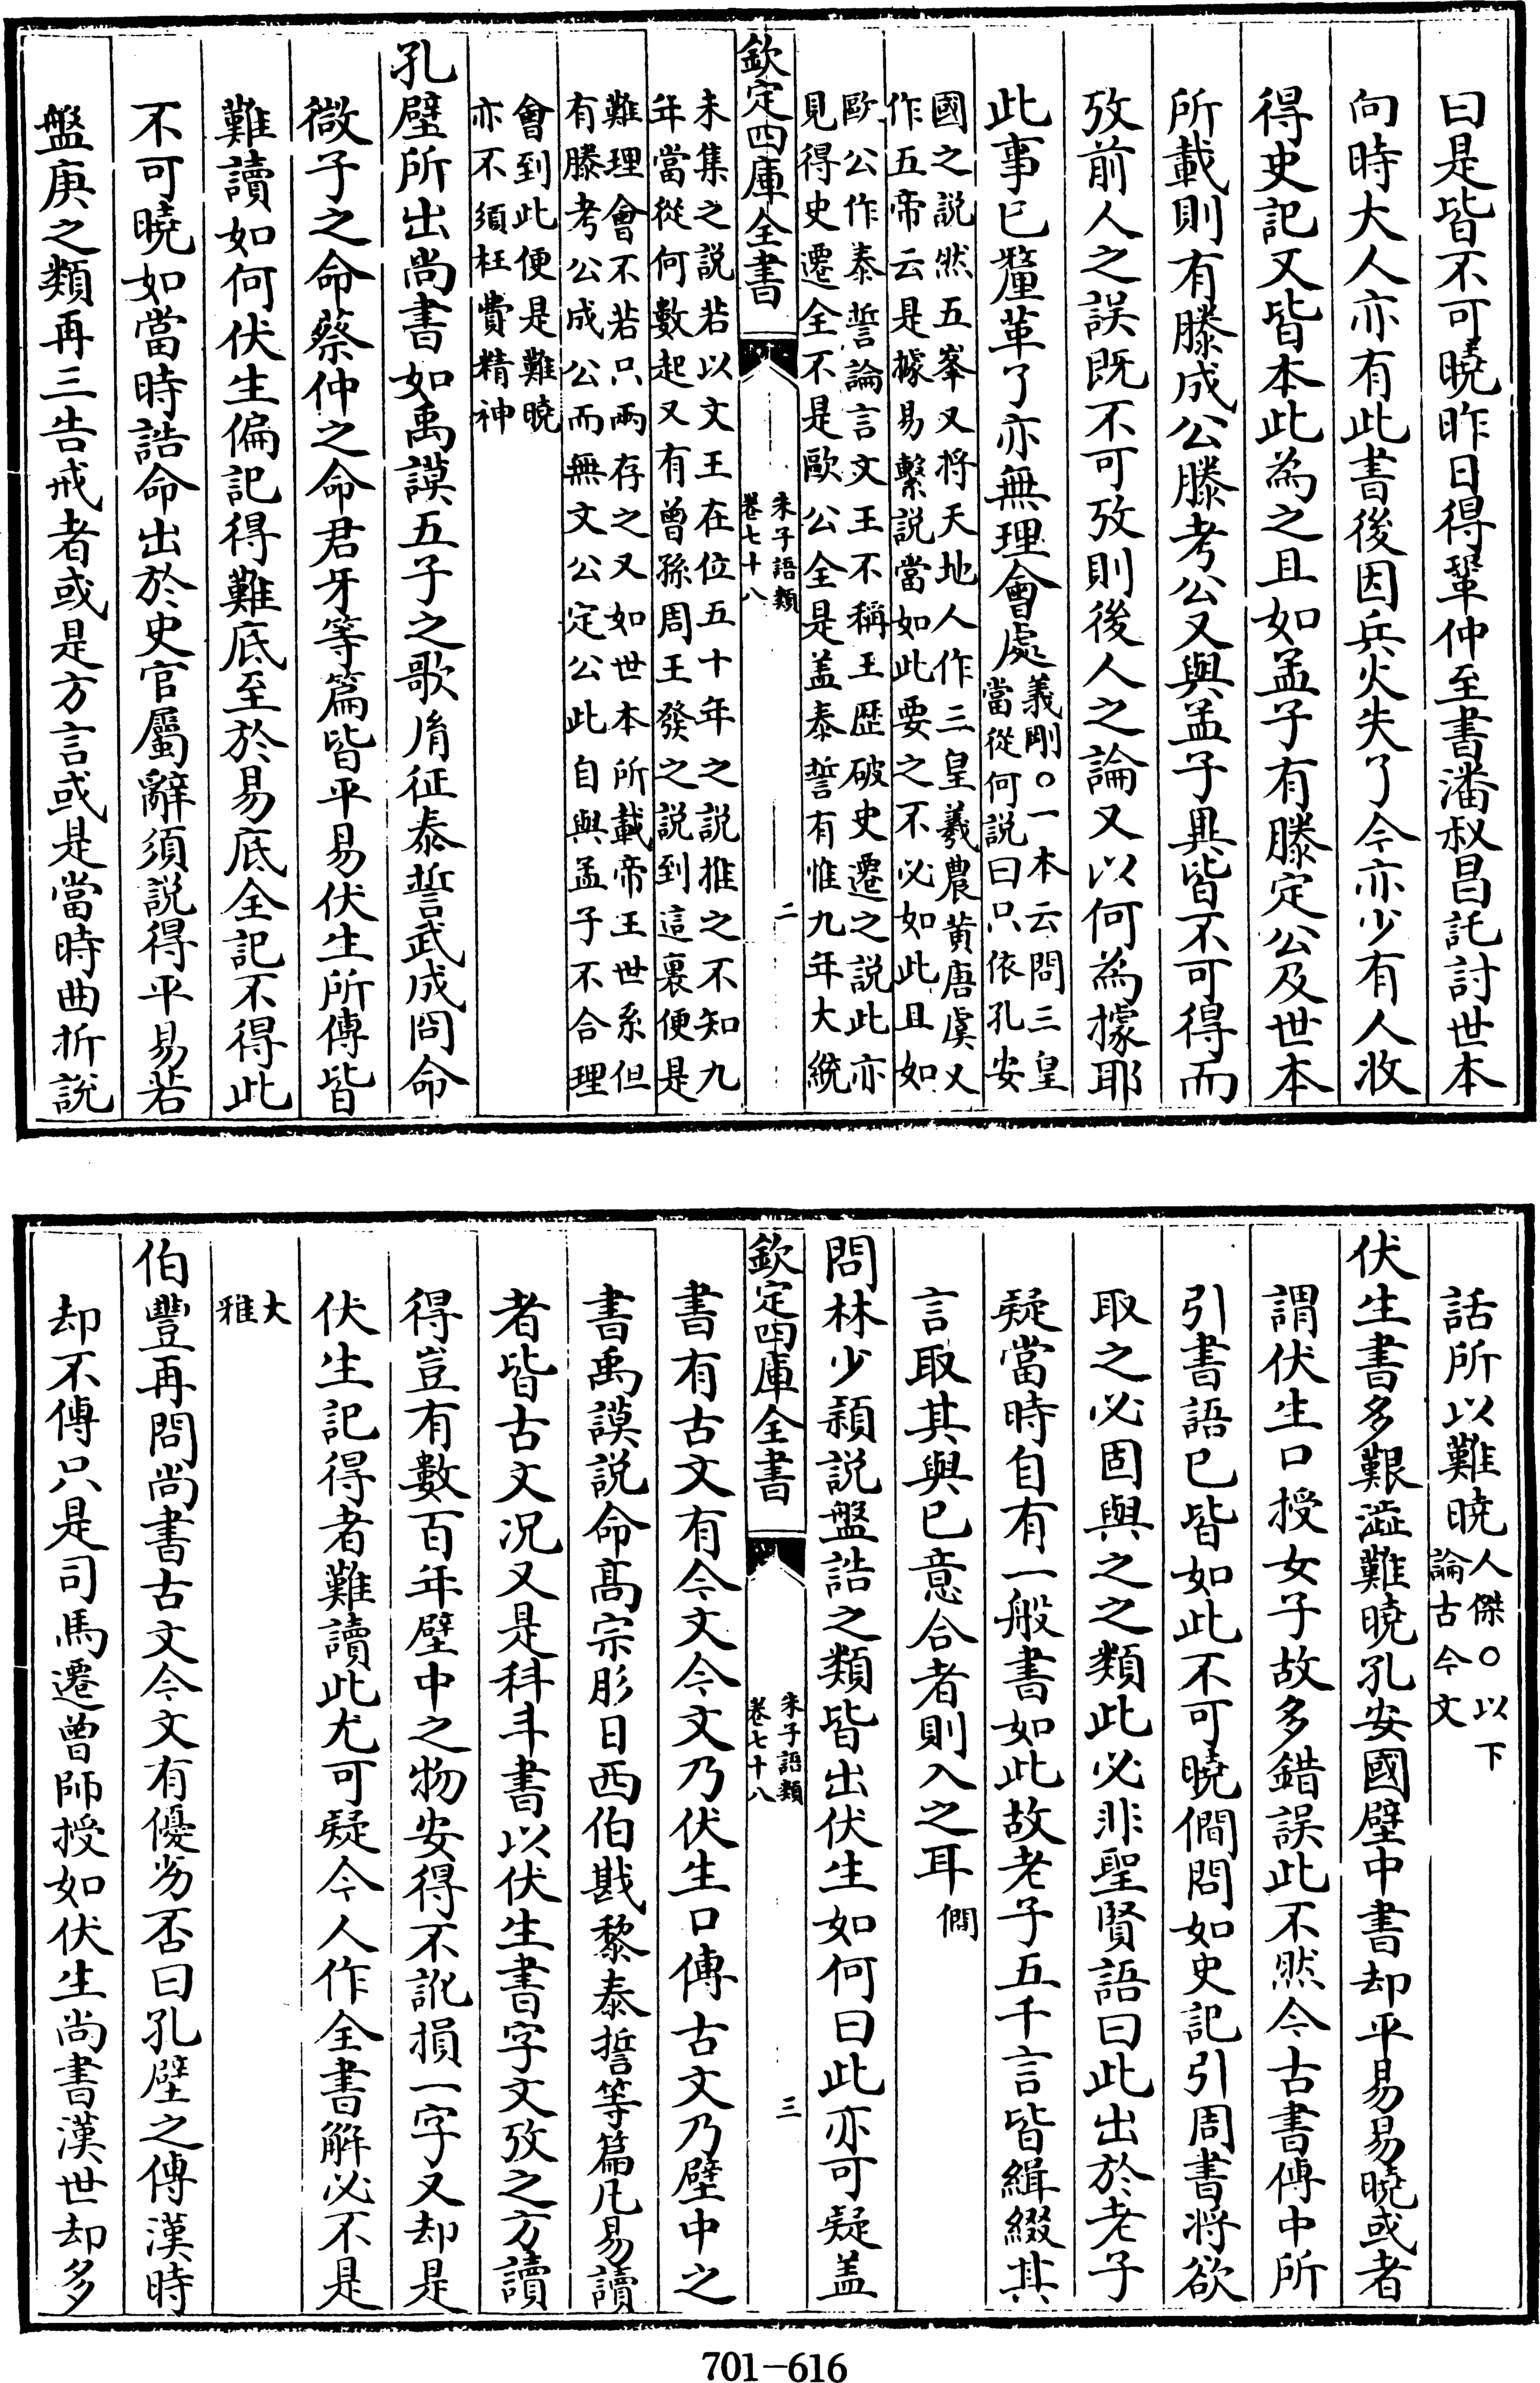 曰是皆不可曉昨日得鞏仲至書潘叔昌託討世本
向時大人亦有此書後因兵火失了今亦少有人收
得史記又皆本此為之且如孟子有滕定公及世本
所載則有滕成公滕考公又與孟子異皆不可得而
攷前人之誤既不可攷則後人之論又以何為據耶
此事已釐革了亦無理會處義剛○一本云問三皇
當從何說曰只依孔安
國之說然五峯又將天地人作三皇羲農黃唐虞又
作五帝云是據易繫說當如此要之不必如此且如
歐公作泰誓論言文王不稱王歷破史遷之說此亦
見得史遷全不是歐公全是盖泰誓有惟九年大統
欽定四庫全書
朱子語類
卷七十八
二
未集之說若以文王在位五十年之說推之不知九
年當從何數起又有曾孫周王發之說到這裏便是
難理會不若只兩存之又如世本所載帝王世系但
有滕考公成公而無文公定公此自與孟子不合理
會到此便是難曉
亦不須枉費精神
孔壁所出尚書如禹謨五子之歌胤征泰誓武成冏命
微子之命蔡仲之命君牙等篇皆平易伏生所傳皆
難讀如何伏生偏記得難底至於易底全記不得此
不可曉如當時誥命出於史官屬辭須說得平易若
盤庚之類再三告戒者或是方言或是當時曲折說
話所以難曉人傑○以下
論古今文
伏生書多艱澀難曉孔安國壁中書却平易易曉或者
謂伏生口授女子故多錯誤此不然今古書傳中所
引書語已皆如此不可曉僩問如史記引周書將欲
取之必固與之之類此必非聖賢語曰此出於老子
疑當時自有一般書如此故老子五千言皆緝綴其
言取其與已意合者則入之耳僩
問林少穎說盤誥之類皆出伏生如何曰此亦可疑盖
欽定四庫全書
朱子語類
卷七十八
三
書有古文有今文今文乃伏生口傳古文乃壁中之
書禹謨說命高宗肜日西伯戡黎泰誓等篇凡易讀
者皆古文况又是科斗書以伏生書字文攷之方讀
得豈有數百年壁中之物安得不訛損一字又却是
伏生記得者難讀此尤可疑今人作全書解必不是
大
雅
伯豐再問尚書古文今文有優劣否曰孔壁之傳漢時
却不傳只是司馬遷曾師授如伏生尚書漢世却多
701-616